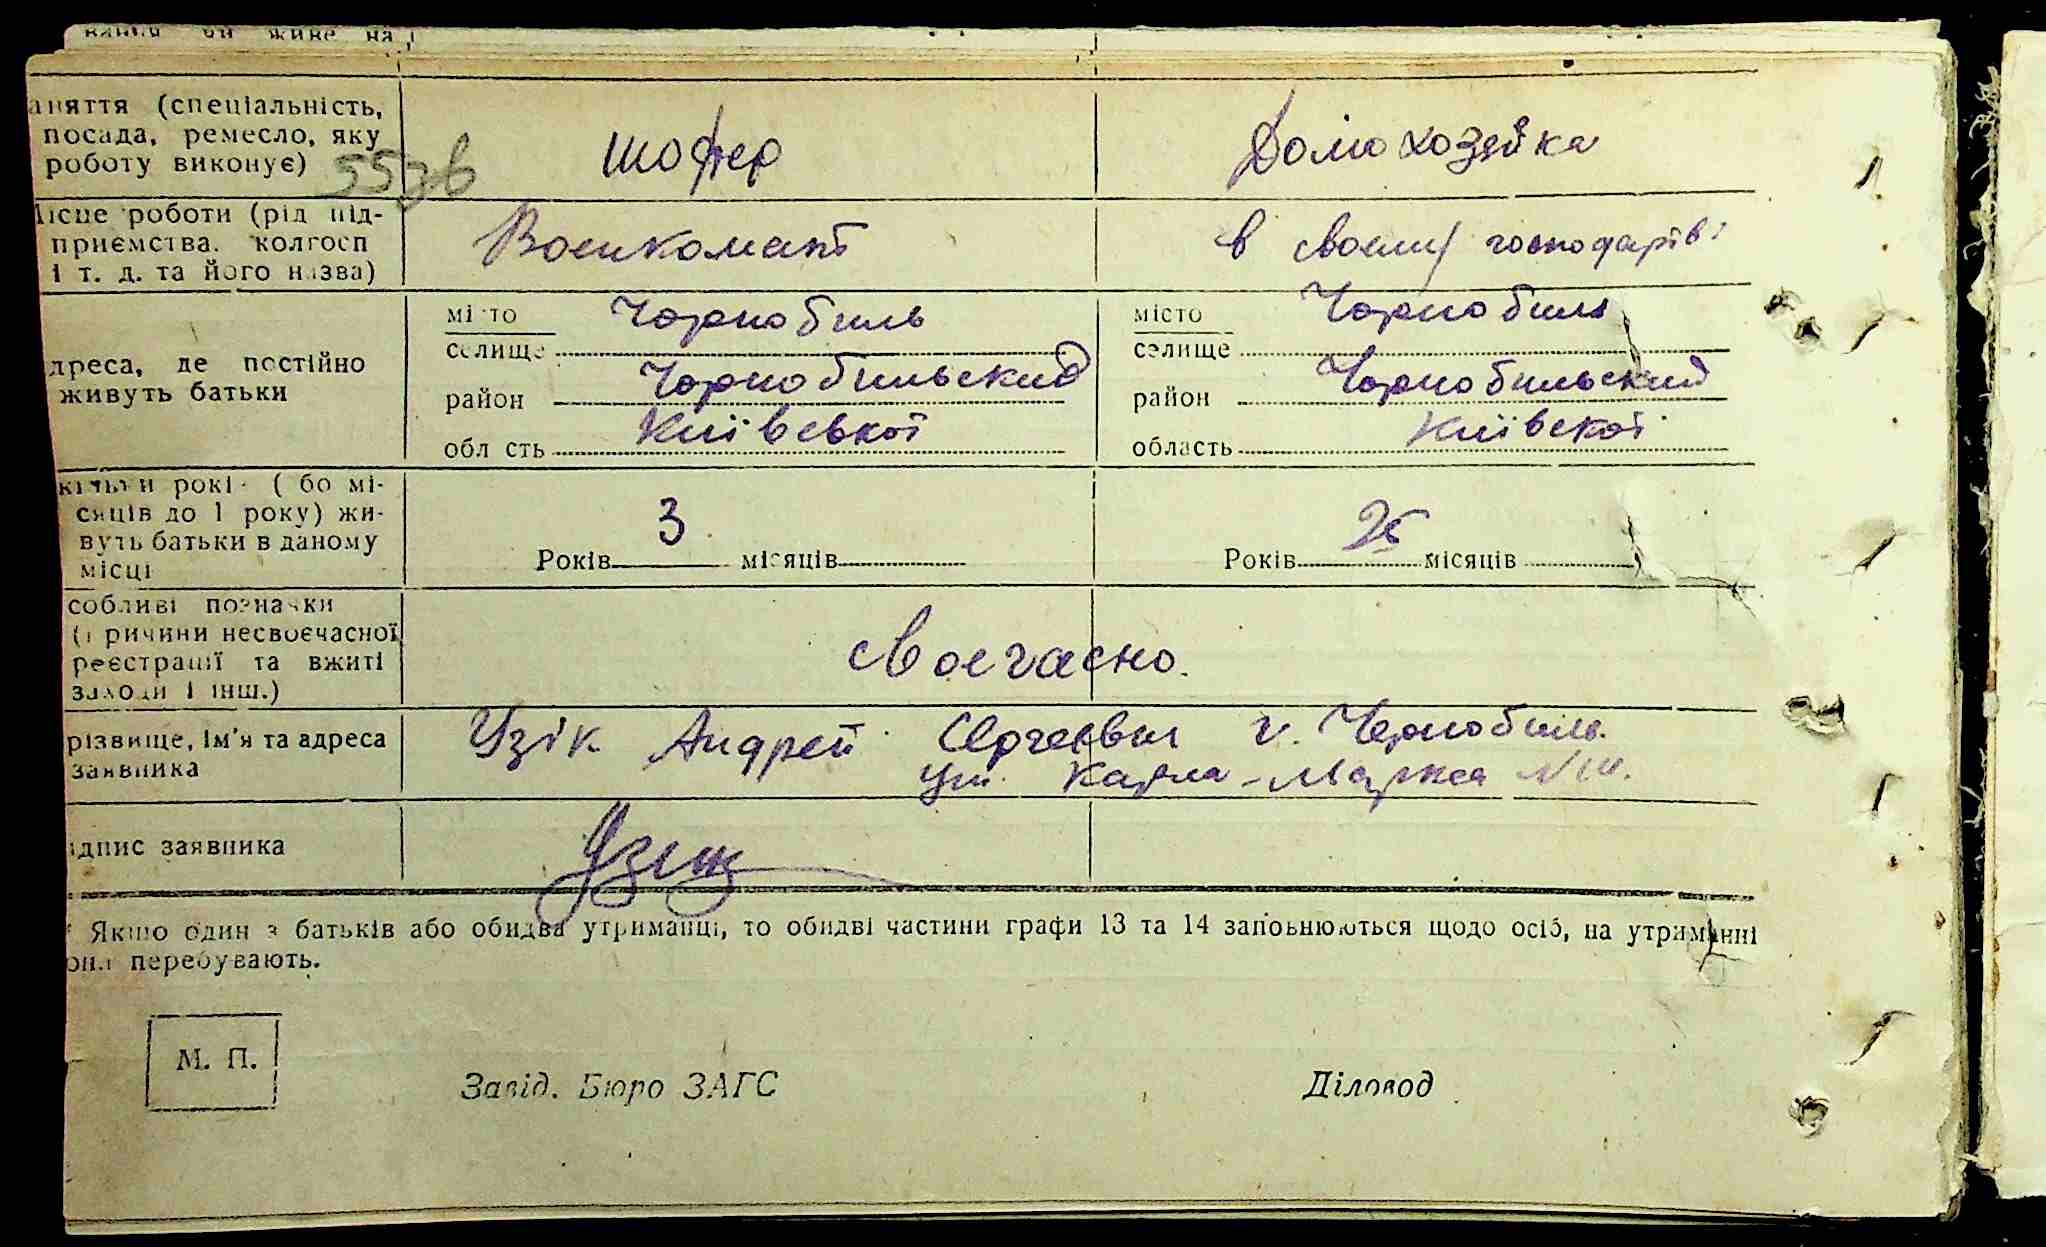 вання чи живе на
аняття (спеціальність, посада, ремесло, яку роботу виконує)
553в
шофер
Домохозяйка
ісце роботи (рід підприємства, колгосп і т. д. та його назва)
Воєнкомат
в своєму господарстві
дреса, де постійно живуть батьки
місто Чорнобиль
селище
район Чорнобильский
область Київської
місто Чорнобиль
селище
район Чорнобильский
область Київскої
кільки років ( бо місяців до 1 року) живуть батьки в даному місці
Років 3 місяців
Років 25 місяців
собливі позначки (причини несвоєчасної реєстрації та вжиті заходи і інш.)
своєчасно.
різвище, ім'я та адреса заявника
Узік Андрей Сергеевич г. Чернобиль
ул. Карла-Маркса
ідпис заявника
* Якщо один з батьків або обидва утриманці, то обидві частини графи 13 та 14 заповнюються щодо осіб, на утриманні
они перебувають.
М. П.
Завід. Бюро ЗАГС
Діловод